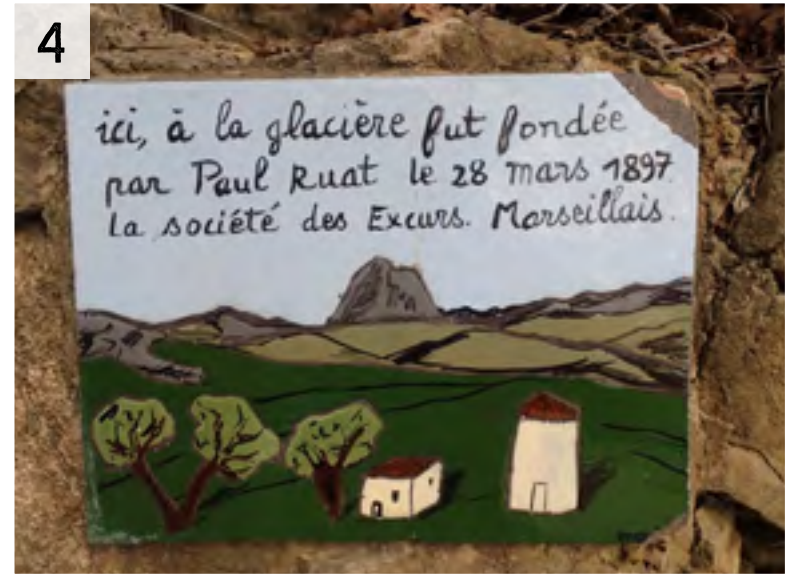 4
ici, à la glacière fut fondée
par Paul Ruat le 28 mars 1897
La société des Excurs. Marseillais.